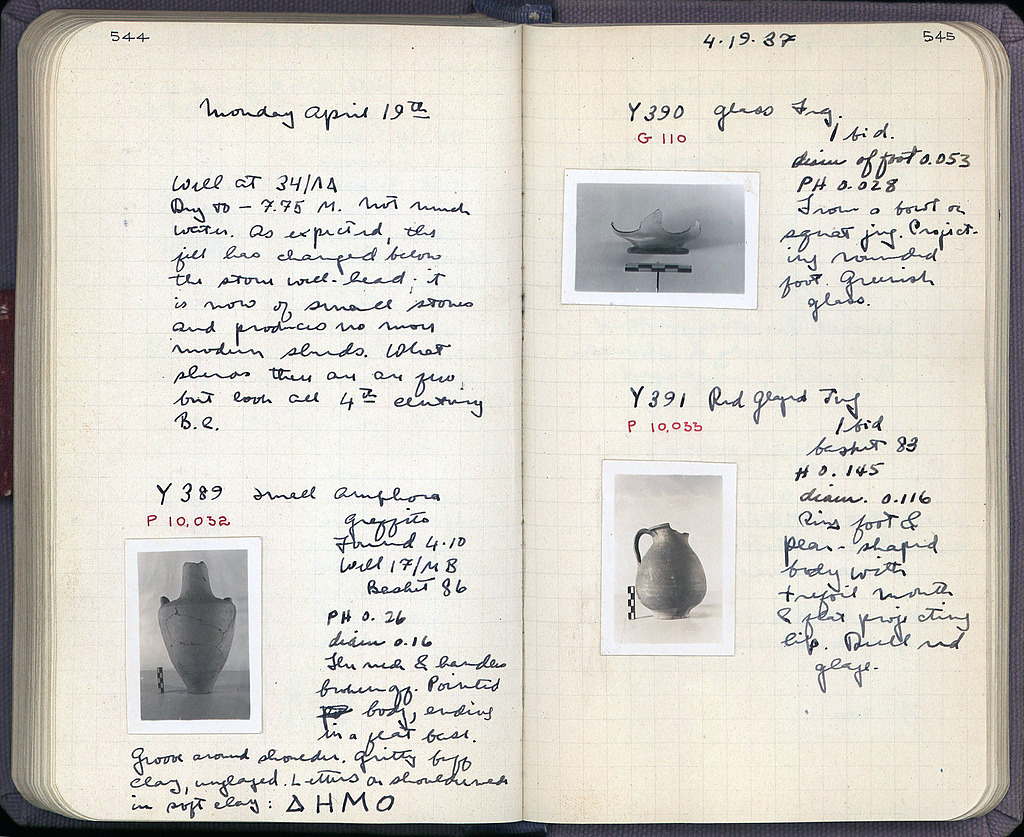 544
Monday April 19th
Well at 34/ΛΔ
Dug to - 7.75 M. Not much
water. As expected, the
fill has changed below
the stone well-head; it
is now of small stones
and produces no more
modern sherds. What
sherds there are are few,
but look all 4th century
B.C.
Y 389 Small Amphora
P 10,032
Graffito
Found 4.10
Well 17/MB
Basket 86
PH 0.26
diam 0.16
The neck & handles
broken off. Pointed
body, ending
in a flat base.
Groove around shoulder. Gritty buff
clay, unglazed. Letters on shoulder
in soft clay: ΔHMO
4.19.37
545
Y 390 Glass Frg.
G 110
1 bid.
diam of foot 0.053
PH 0.028
From a bowl or
squat jug. Project-
ing rounded
foot. Greenish
glass.
Y 391 Red Glazed Jug
P 10,033
1 bid
basket 83
H 0.145
diam. 0.116
Ring foot &
pear-shaped
body with
trefoil mouth
& flat projecting
lip. Dull red
glaze.